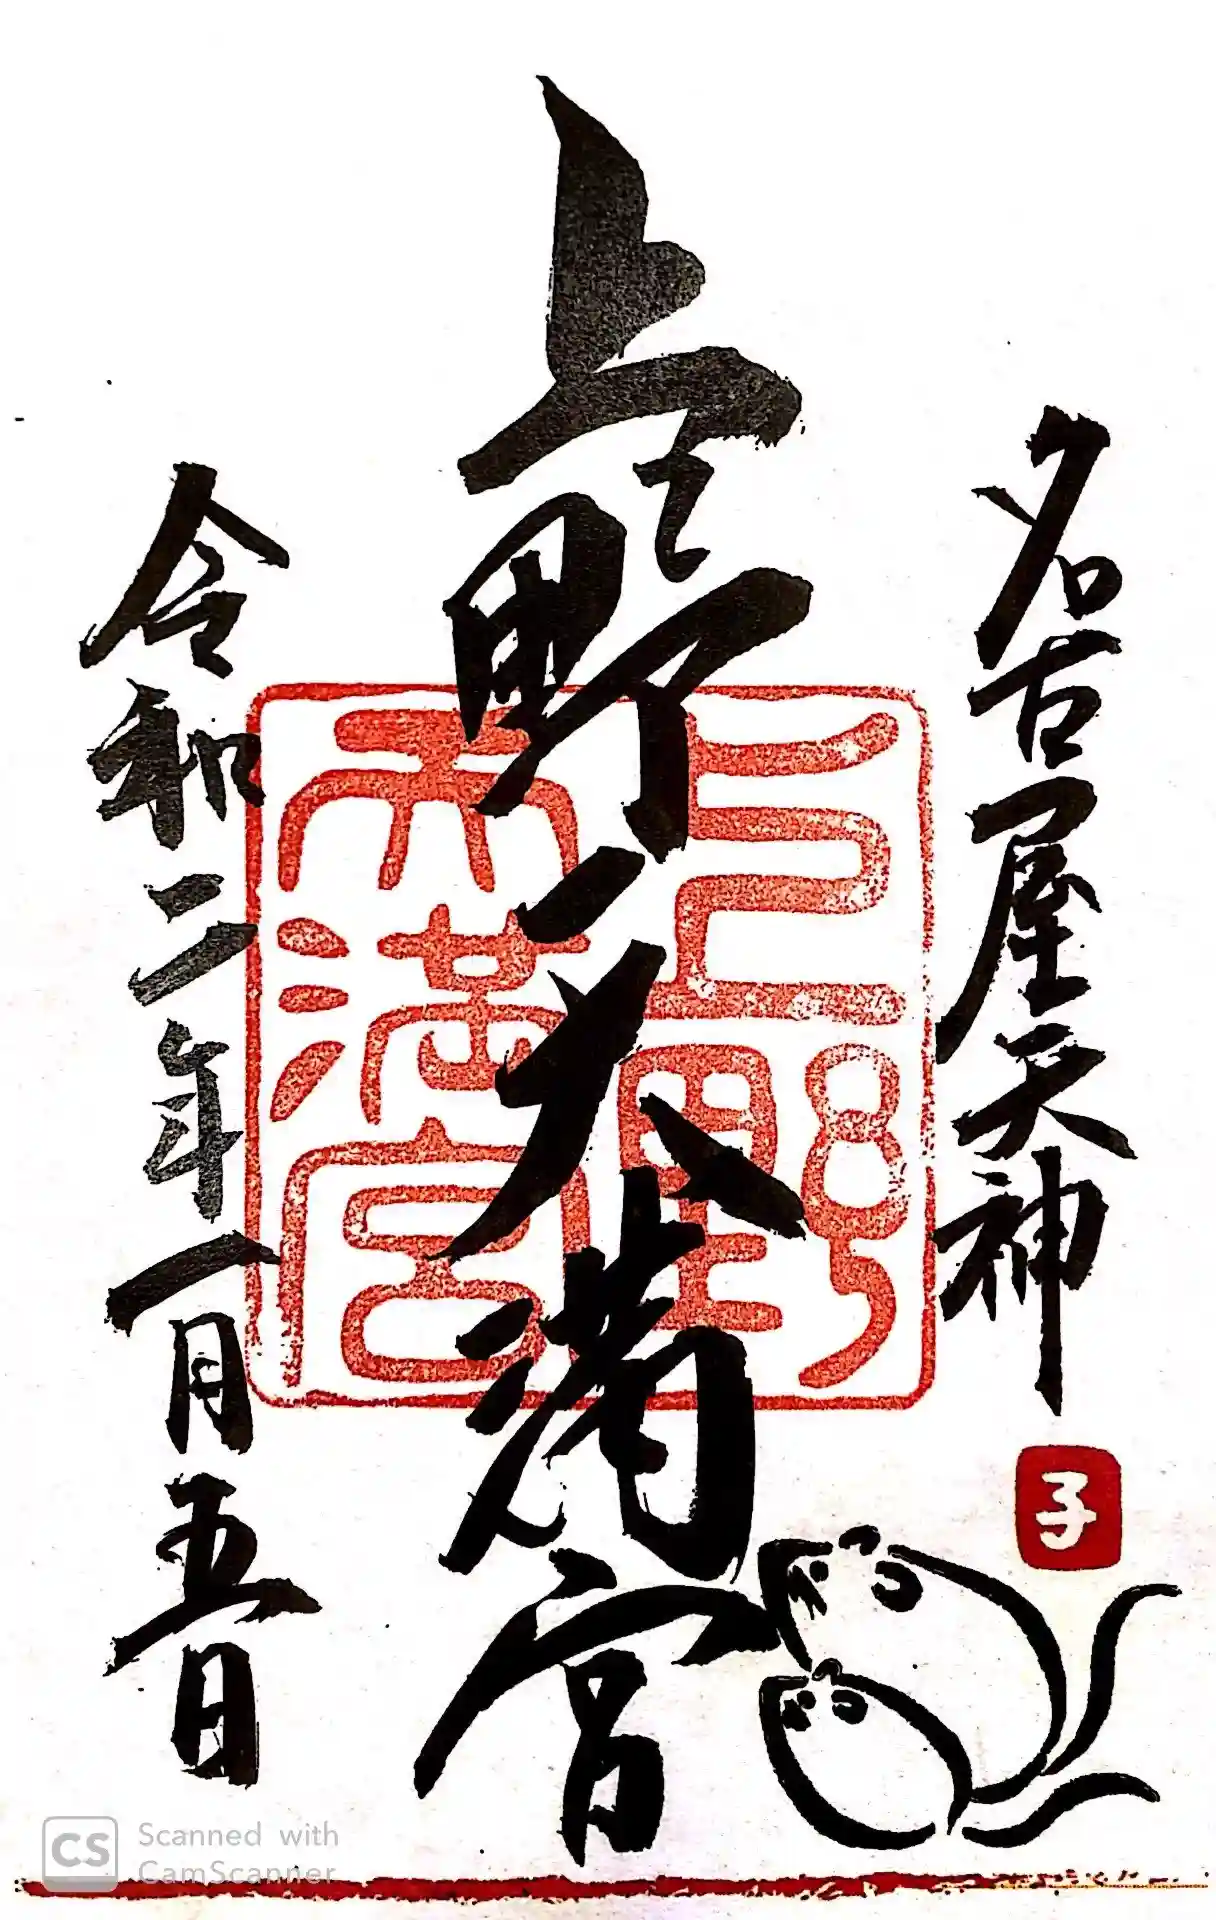 名古屋天神
子
上野天満宮
上野
天満宮
令和二年一月五日
CS
Scanned with
CamScanner